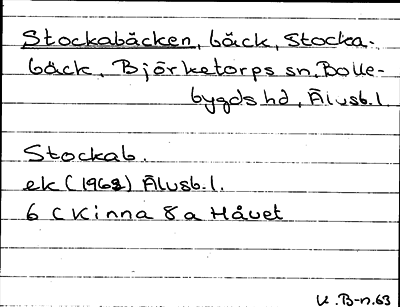 Stockabäcken, bäck, Stocka-
bäck, Björketorps sn, Bolle-
bygds hd, Älvsb. l
Stockab.
ek (1968) Älvsb. l.
6 C Kinna 8 a Håvet
K. B-n. 63